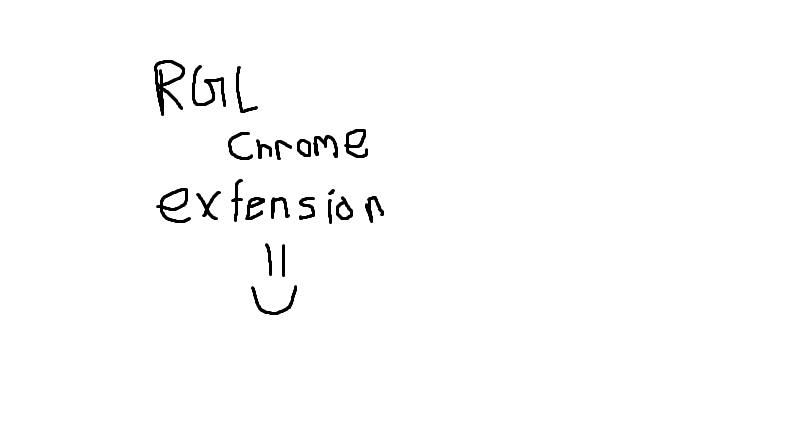 RGL
Chrome
extension